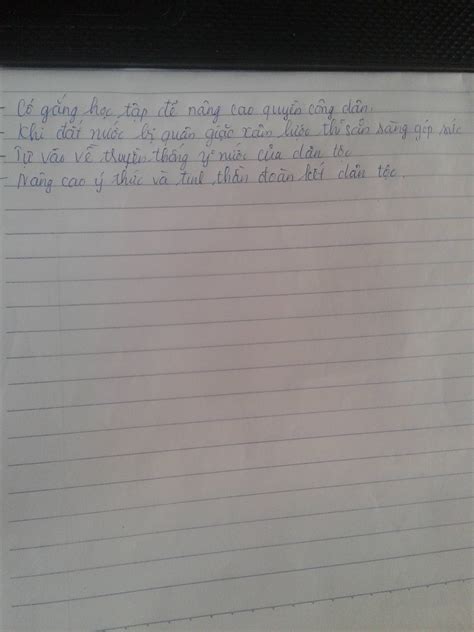 - Cố gắng học tập để nâng cao quyền công dân.
- Khi đất nước bị quân giặc xâm lước thì sẵn sàng góp sức
- Tự vào về truyền thống y nước của dân tộc
- Nâng cao ý thức và tinh thần đoàn kết dân tộc.